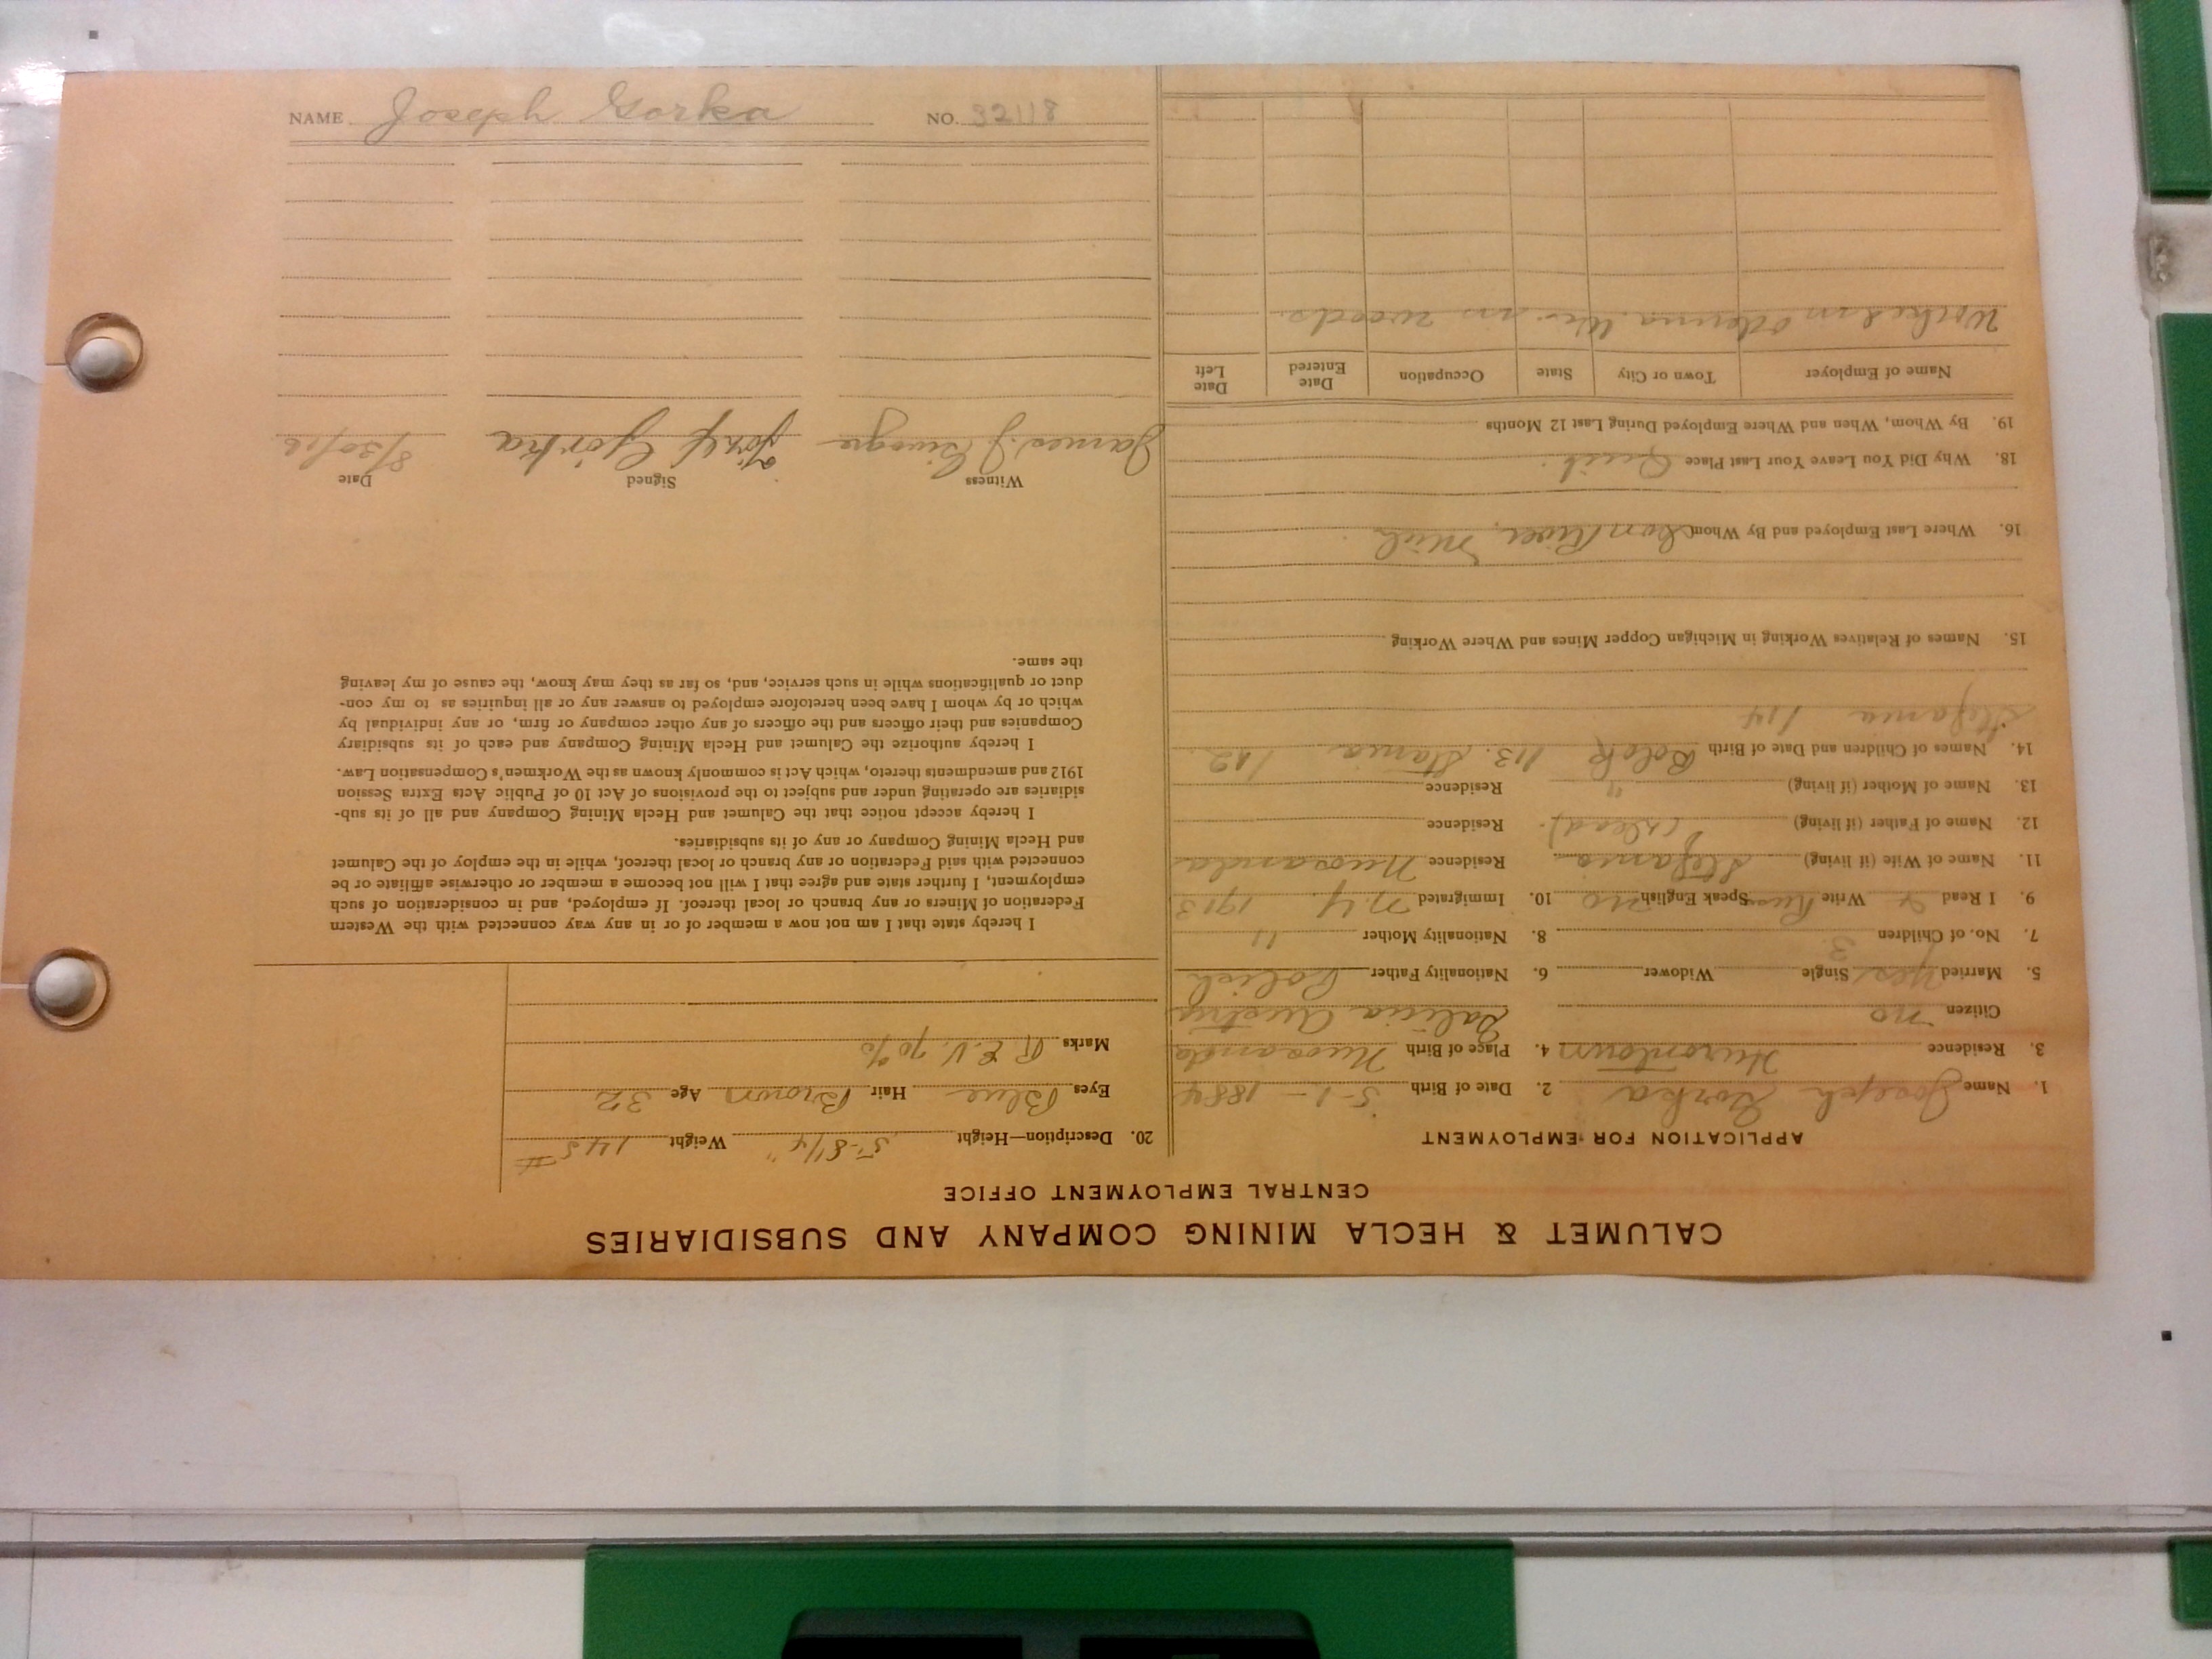 CALUMET & HECLA MINING COMPANY AND SUBSIDIARIES
CENTRAL EMPLOYMENT OFFICE
APPLICATION FOR EMPLOYMENT
1. Name Joseph Gorka 2. Date of Birth 5-1-1884
3. Residence Hurontown 4. Place of Birth
Citizen no Galicia Austria
5. Married yes Single Widower 6. Nationality Father Polish
7. No. of Children 3. 8. Nationality Mother "
9. I Read & Write Speak English no 10. Immigrated N.Y. 1913
11. Name of Wife (if living) Stefania Residence
12. Name of Father (if living) (dead). Residence
13. Name of Mother (if living) " Residence
14. Names of Children and Date of Birth
Stefania 1/14
15. Names of Relatives Working in Michigan Copper Mines and Where Working
16. Where Last Employed and By Whom Iron River, Mich
18. Why Did You Leave Your Last Place Quit.
19. By Whom, When and Where Employed During Last 12 Months
Name of Employer Town or City State Occupation Date Entered Date Left
Worked in Wis. in woods.
20. Description—Height 5-8 1/4" Weight 145#
Eyes Blue Hair Brown Age 32
Marks R.E.V. 70%
I hereby state that I am not now a member of or in any way connected with the Western
Federation of Miners or any branch or local thereof. If employed, and in consideration of such
employment, I further state and agree that I will not become a member or otherwise affiliate or be
connected with said Federation or any branch or local thereof, while in the employ of the Calumet
and Hecla Mining Company or any of its subsidiaries.
I hereby accept notice that the Calumet and Hecla Mining Company and all of its sub-
sidiaries are operating under and subject to the provisions of Act 10 of Public Acts Extra Session
1912 and amendments thereto, which Act is commonly known as the Workmen's Compensation Law.
I hereby authorize the Calumet and Hecla Mining Company and each of its subsidiary
Companies and their officers and the officers of any other company or firm, or any individual by
which or by whom I have been heretofore employed to answer any or all inquiries as to my con-
duct or qualifications while in such service, and, so far as they may know, the cause of my leaving
the same.
Witness Signed Date
James J. Józef Gorka 8/30/16
NAME Joseph Gorka NO. 32118